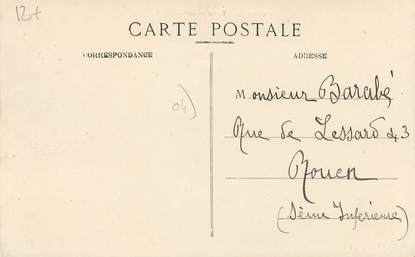 12+
CARTE POSTALE
CORRESPONDANCE
ADRESSE
04)
Monsieur Barabé
Rue de Lessard 43
Rouen
(Seine Inférieure)